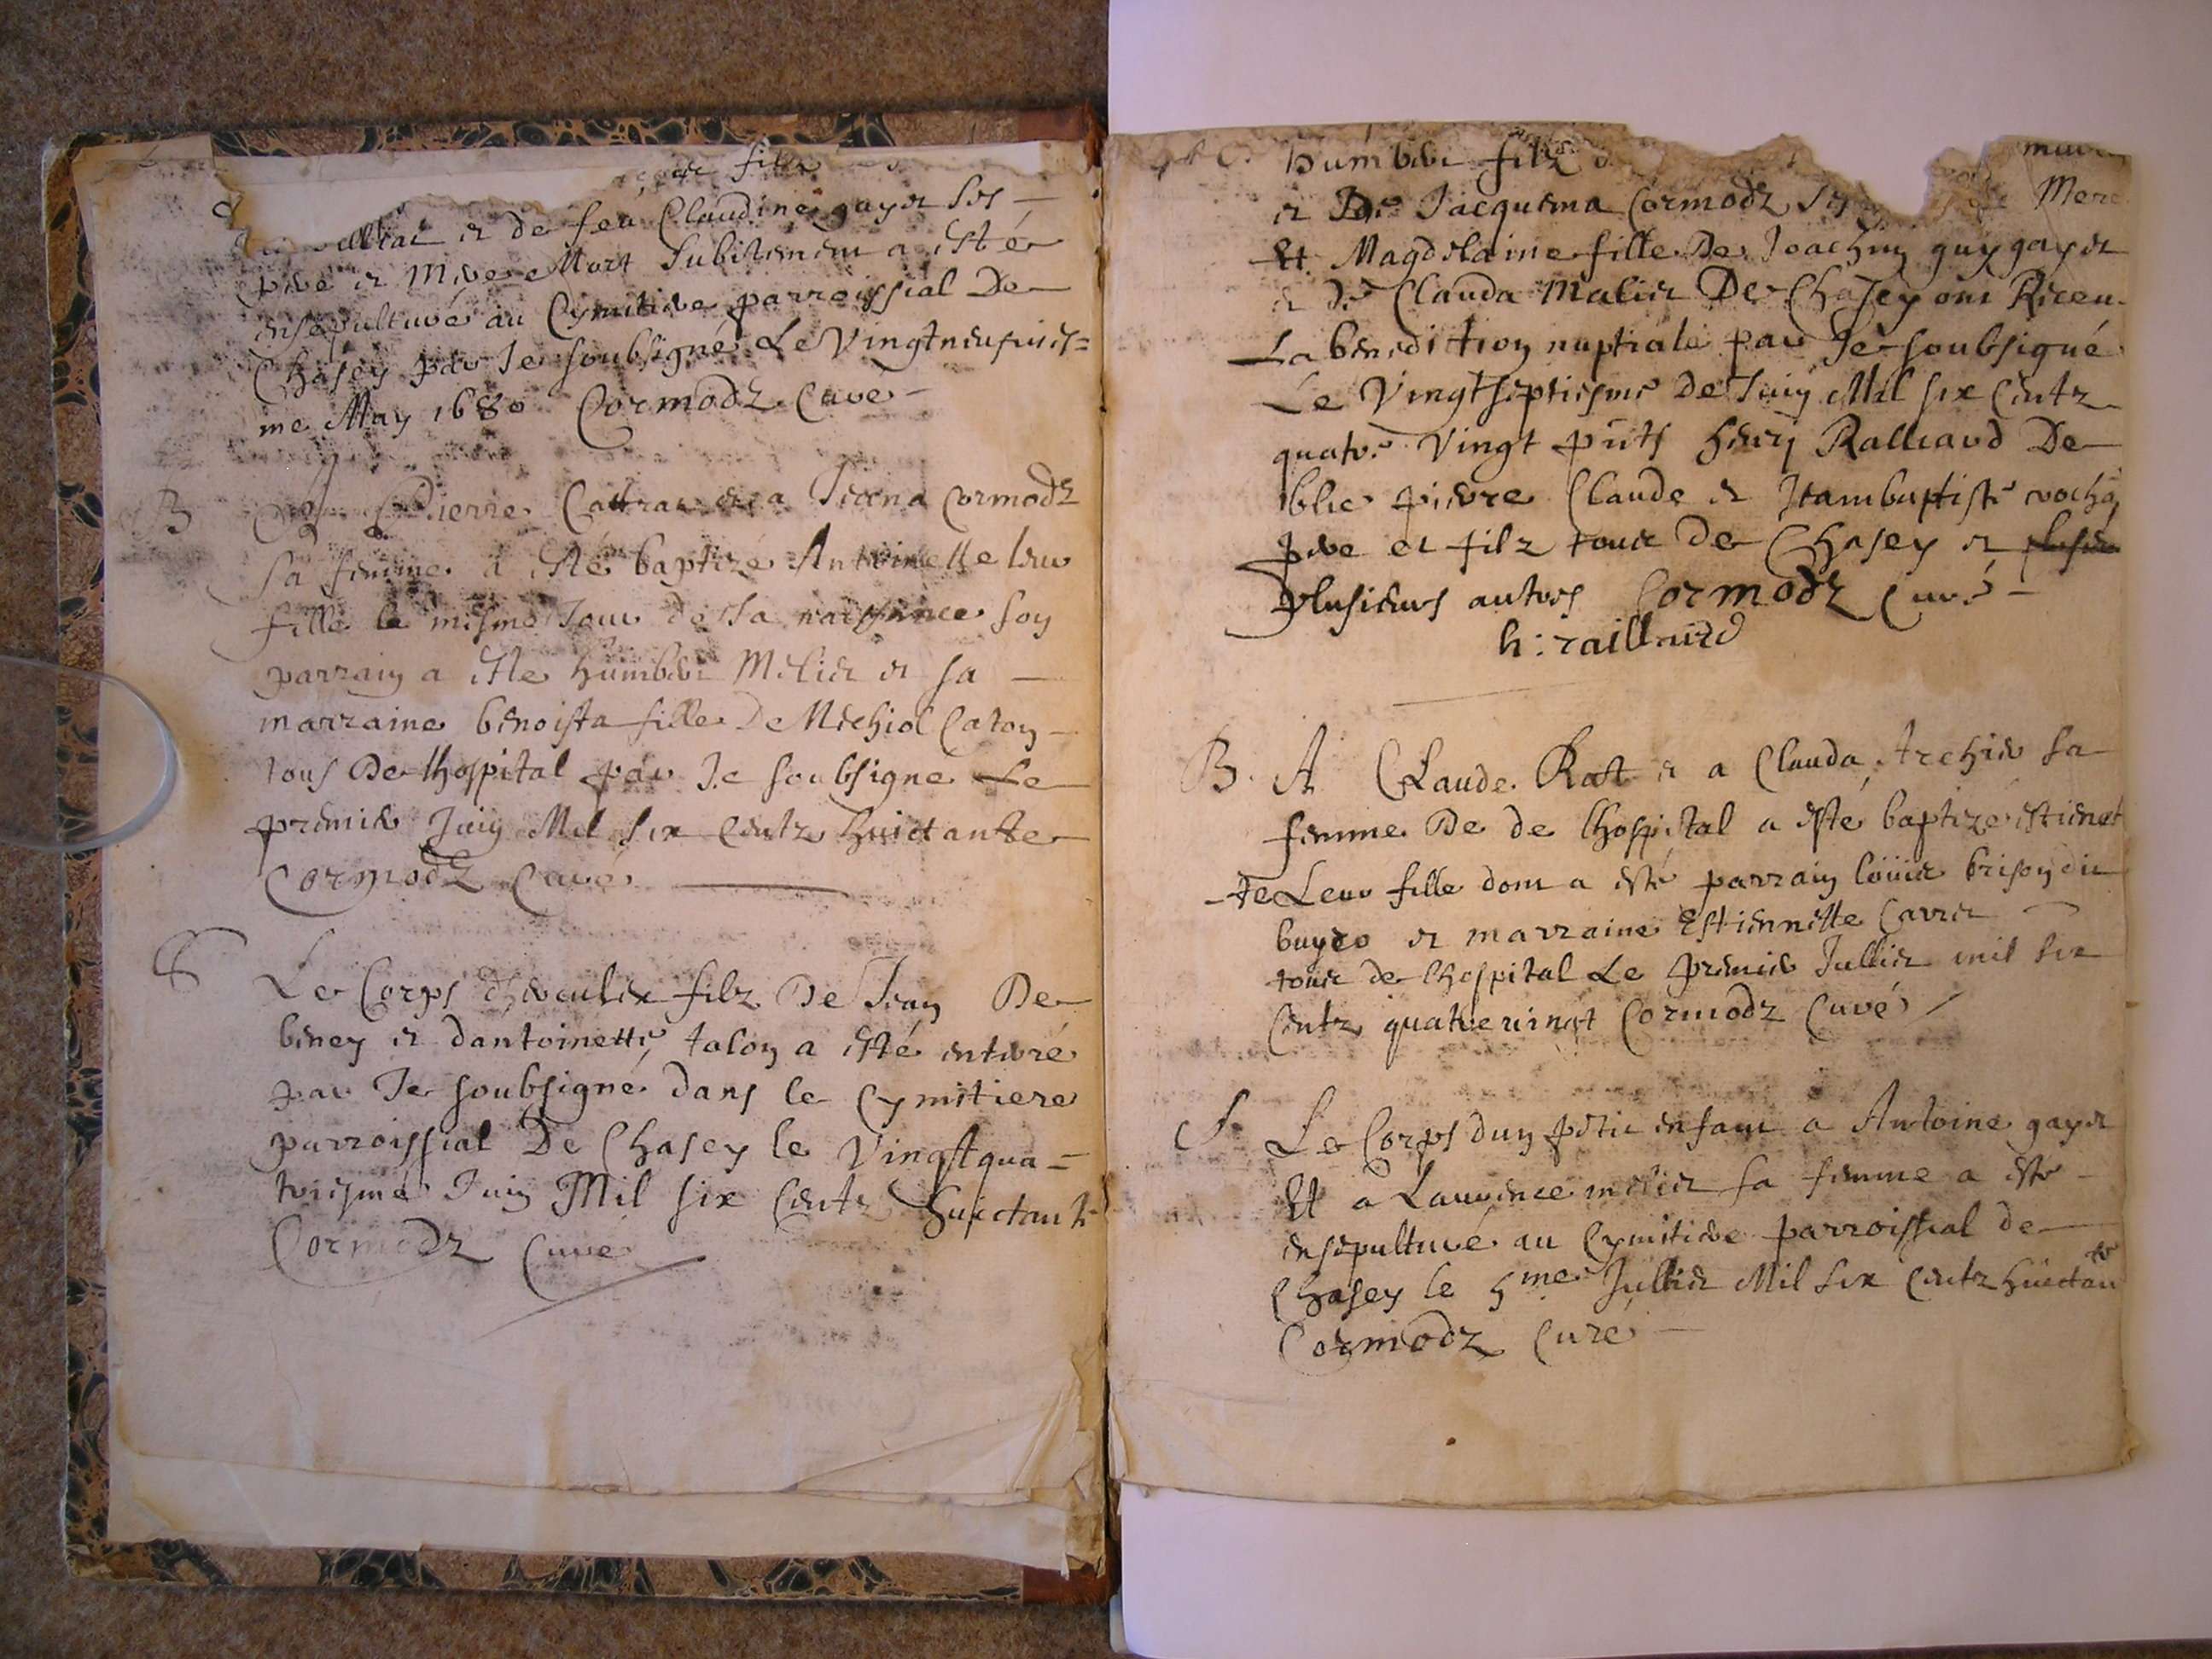 fille
et de feu Claudine gayet ses
pere et Mere Mort subitement a esté
ensepulturé au Cymitiere parroissial De
Chasey par Je soubsigné Le Vingtneufvies=
me May 1680 Cormodz Curé
B
Pierre Cattras et a Jeana Cormodz
sa femme a esté baptizé Anthoinette leur
fille le mesme Jour de sa naissance son
parrain a esté humbert Melier et sa
marraine benoista fille De Michiel Caton
tous De lhospital par Je soubsigne Le
premier Juin Mil six Centz huictante
Cormodz Curé
S
Le Corps dherculex filz De Jean De
beney et dantoinette talon a esté enterré
par Je soubsigné dans le Cymitiere
parroissial De Chasey le Vingtqua=
triesme Juin Mil six Centz huictante
Cormodz Curé
humbert filz
et De Jacquema Cormodz ses Mere
Et Magdelaine fille De Joachin guygayet
et de Clauda Malier De Chasey ont Receu
La benediction nuptiale par Je soubsigné
Le Vingtseptiesme De Juin Mil six Centz
quatre Vingt pntz henry Ralliard De
blie pierre Claude et Jeambaptiste rochon
pere et filz touts De Chasey et
plusieurs autres Cormodz Curé
h: raillard
B. A Claude Rat et a Clauda trehier sa
femme De de lhospital a esté baptizé estienet
-te Leur fille dont a esté parrain loüis brison dit
buyeo et marraine Estiennette Carret
touts de lhospital Le premier Jullier mil six
Centz quatrevingt Cormodz Curé
S. Le Corps dun petit enfant a Antoine gayet
Et a Laurence melier sa femme a esté
ensepulturé au Cymitiere parroissial de
Chasey le 5me Jullier Mil six Centz huictante
Cormodz Curé